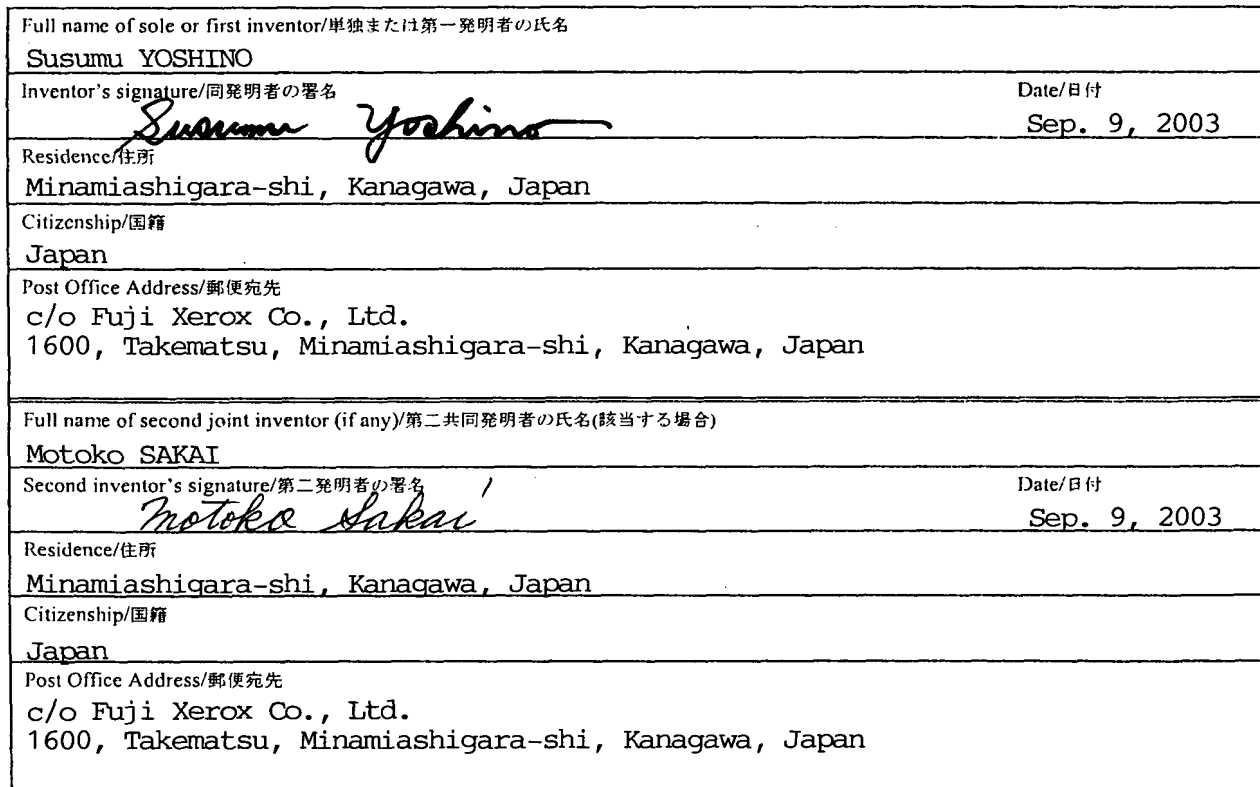 Full name of sole or first inventor/単独または第一発明者の氏名
Susumu YOSHINO
Inventor's signature/同発明者の署名 Date/日付
Susumu Yoshino Sep. 9, 2003
Residence/住所
Minamiashigara-shi, Kanagawa, Japan
Citizenship/国籍
Japan
Post Office Address/郵便宛先
c/o Fuji Xerox Co., Ltd.
1600, Takematsu, Minamiashigara-shi, Kanagawa, Japan
Full name of second joint inventor (if any)/第二共同発明者の氏名(該当する場合)
Motoko SAKAI
Second inventor's signature/第二発明者の署名 Date/日付
Motoko Sakai Sep. 9, 2003
Residence/住所
Minamiashigara-shi, Kanagawa, Japan
Citizenship/国籍
Japan
Post Office Address/郵便宛先
c/o Fuji Xerox Co., Ltd.
1600, Takematsu, Minamiashigara-shi, Kanagawa, Japan